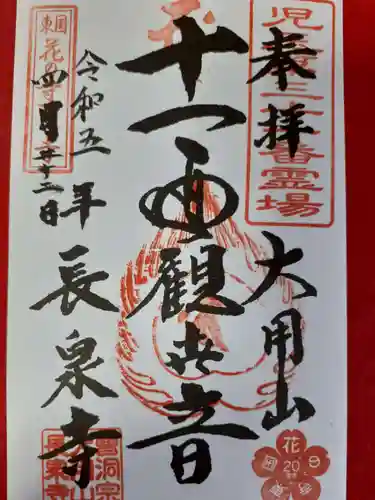 奉拝
児玉三十三番霊場
大用山
十一面觀世音
令和五年
四月二十二日
長泉寺
東国
花の寺
曹洞宗
長泉寺
花
20